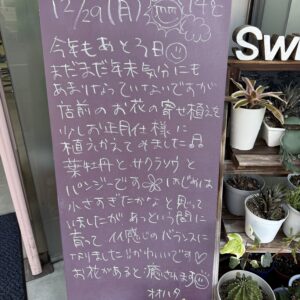 12/29(月) 14℃
今年もあと3日
まだまだ年末気分にも
あまりなっていないですが
店前のお花の寄せ植えを
少しお正月仕様に
植えかえてきました♫
葉牡丹とサクラソウと
パンジーです はじめは
小さすぎたかなと思って
いましたが あっという間に
育って イイ感じのバランスに
なりました！かわいいです♡
お花があると癒されます
オオハタ
SW